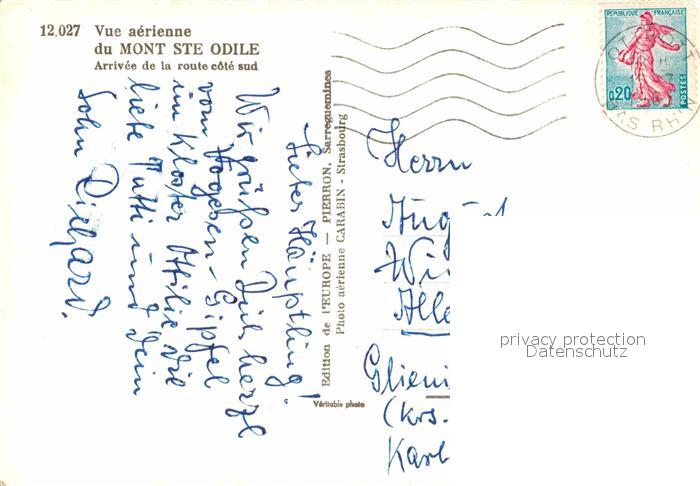 12.027 Vue aérienne
du MONT STE ODILE
Arrivée de la route côté sud
Edition de l'EUROPE — PIERRON, Sarreguemines
Photo aérienne CARABIN - Strasbourg
Véritable photo
Lieber Häuptling!
Wir grüßen Dich herzl
vom Vogesen-Gipfel
im Kloster Ottilie Die
liebe Tutti und Dein
Sohn Dithard.
REPUBLIQUE FRANÇAISE
0,20
POSTES
OTT
BAS RHIN
Herrn
August
Wi
Alle
Glieni
(Krs.
Karl
privacy protection
Datenschutz